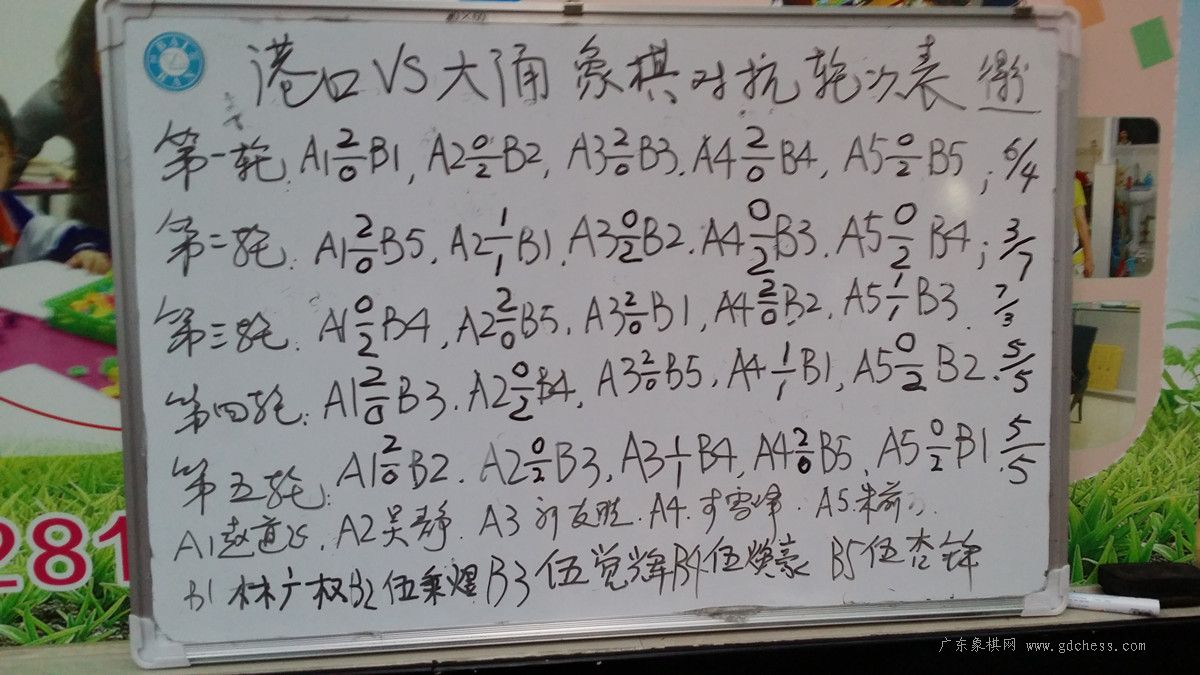 港口VS大涌象棋对抗轮次表 得分
第一轮: A1 2/0 B1, A2 0/2 B2, A3 2/0 B3. A4 2/0 B4, A5 0/2 B5; 6/4
第二轮: A1 2/0 B5. A2 1/1 B1. A3 0/2 B2. A4 0/2 B3. A5 0/2 B4; 3/7
第三轮: A1 0/2 B4, A2 2/0 B5, A3 2/0 B1, A4 2/0 B2, A5 1/1 B3. 7/3
第四轮: A1 2/0 B3. A2 0/2 B4, A3 2/0 B5, A4 1/1 B1, A5 0/2 B2. 5/5
第五轮: A1 2/0 B2. A2 0/2 B3, A3 1/1 B4, A4 2/0 B5, A5 0/2 B1. 5/5
A1 赵道 . A2 吴静. A3 友胜. A4. 雪峰. A5. 朱前
B1 林广权 B2 伍秉煜 B3 伍觉辉 B4 伍焕豪 B5 伍杏锋
281
广东象棋网 www.gdchess.com